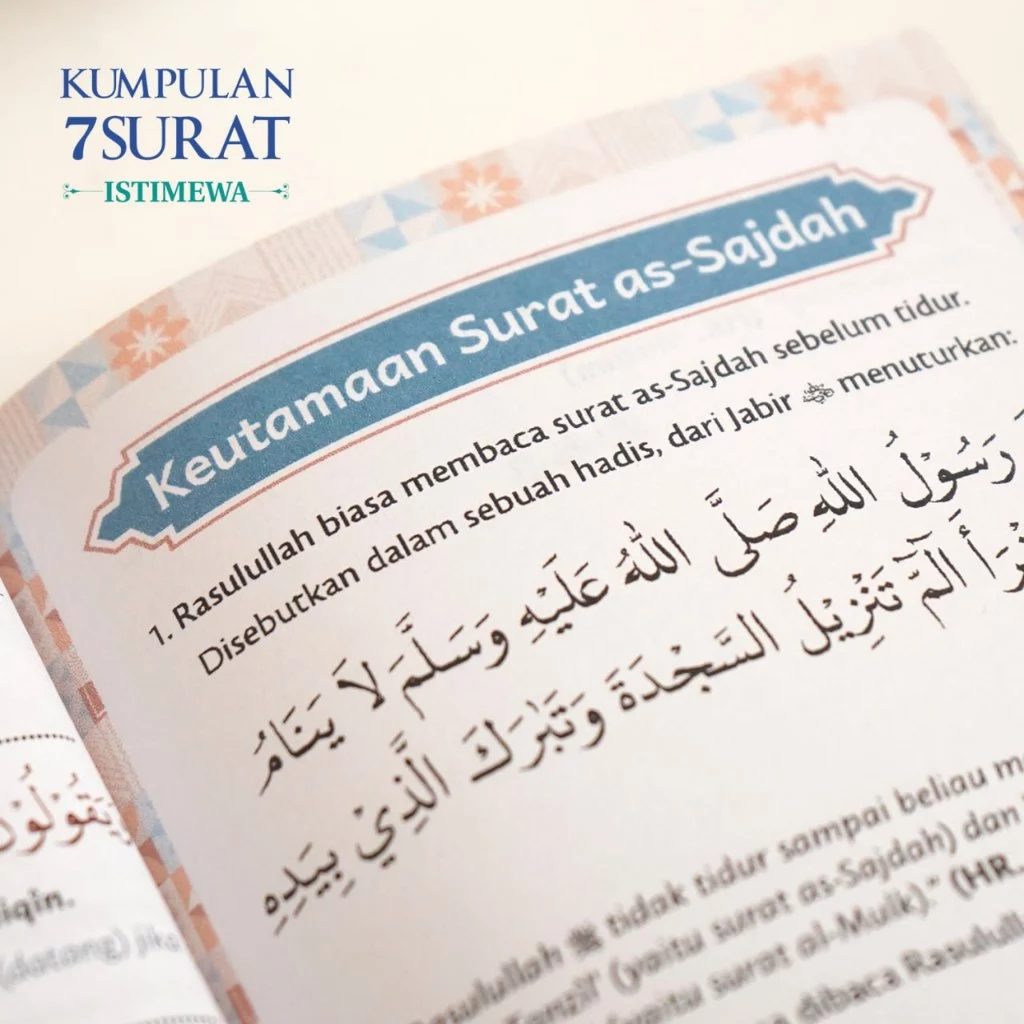 KUMPULAN
7SURAT
ISTIMEWA
Keutamaan Surat as-Sajdah
1. Rasulullah biasa membaca surat as-Sajdah sebelum tidur.
Disebutkan dalam sebuah hadis, dari Jabir ﷺ menuturkan:
رَسُوْلُ اللهِ صَلَّى اللهُ عَلَيْهِ وَسَلَّمَ لاَ يَنَامُ
الٓمّٓ تَنْزِيْلُ السَّجْدَةَ وَتَبٰرَكَ الَّذِيْ بِيَدِهِ
ﷺ tidak tidur sampai beliau
(yaitu surat as-Sajdah) dan
(yaitu surat al-Mulk)." (HR.
dibaca
يَقُوْلُوْنَ
iqin.
(datang) jika